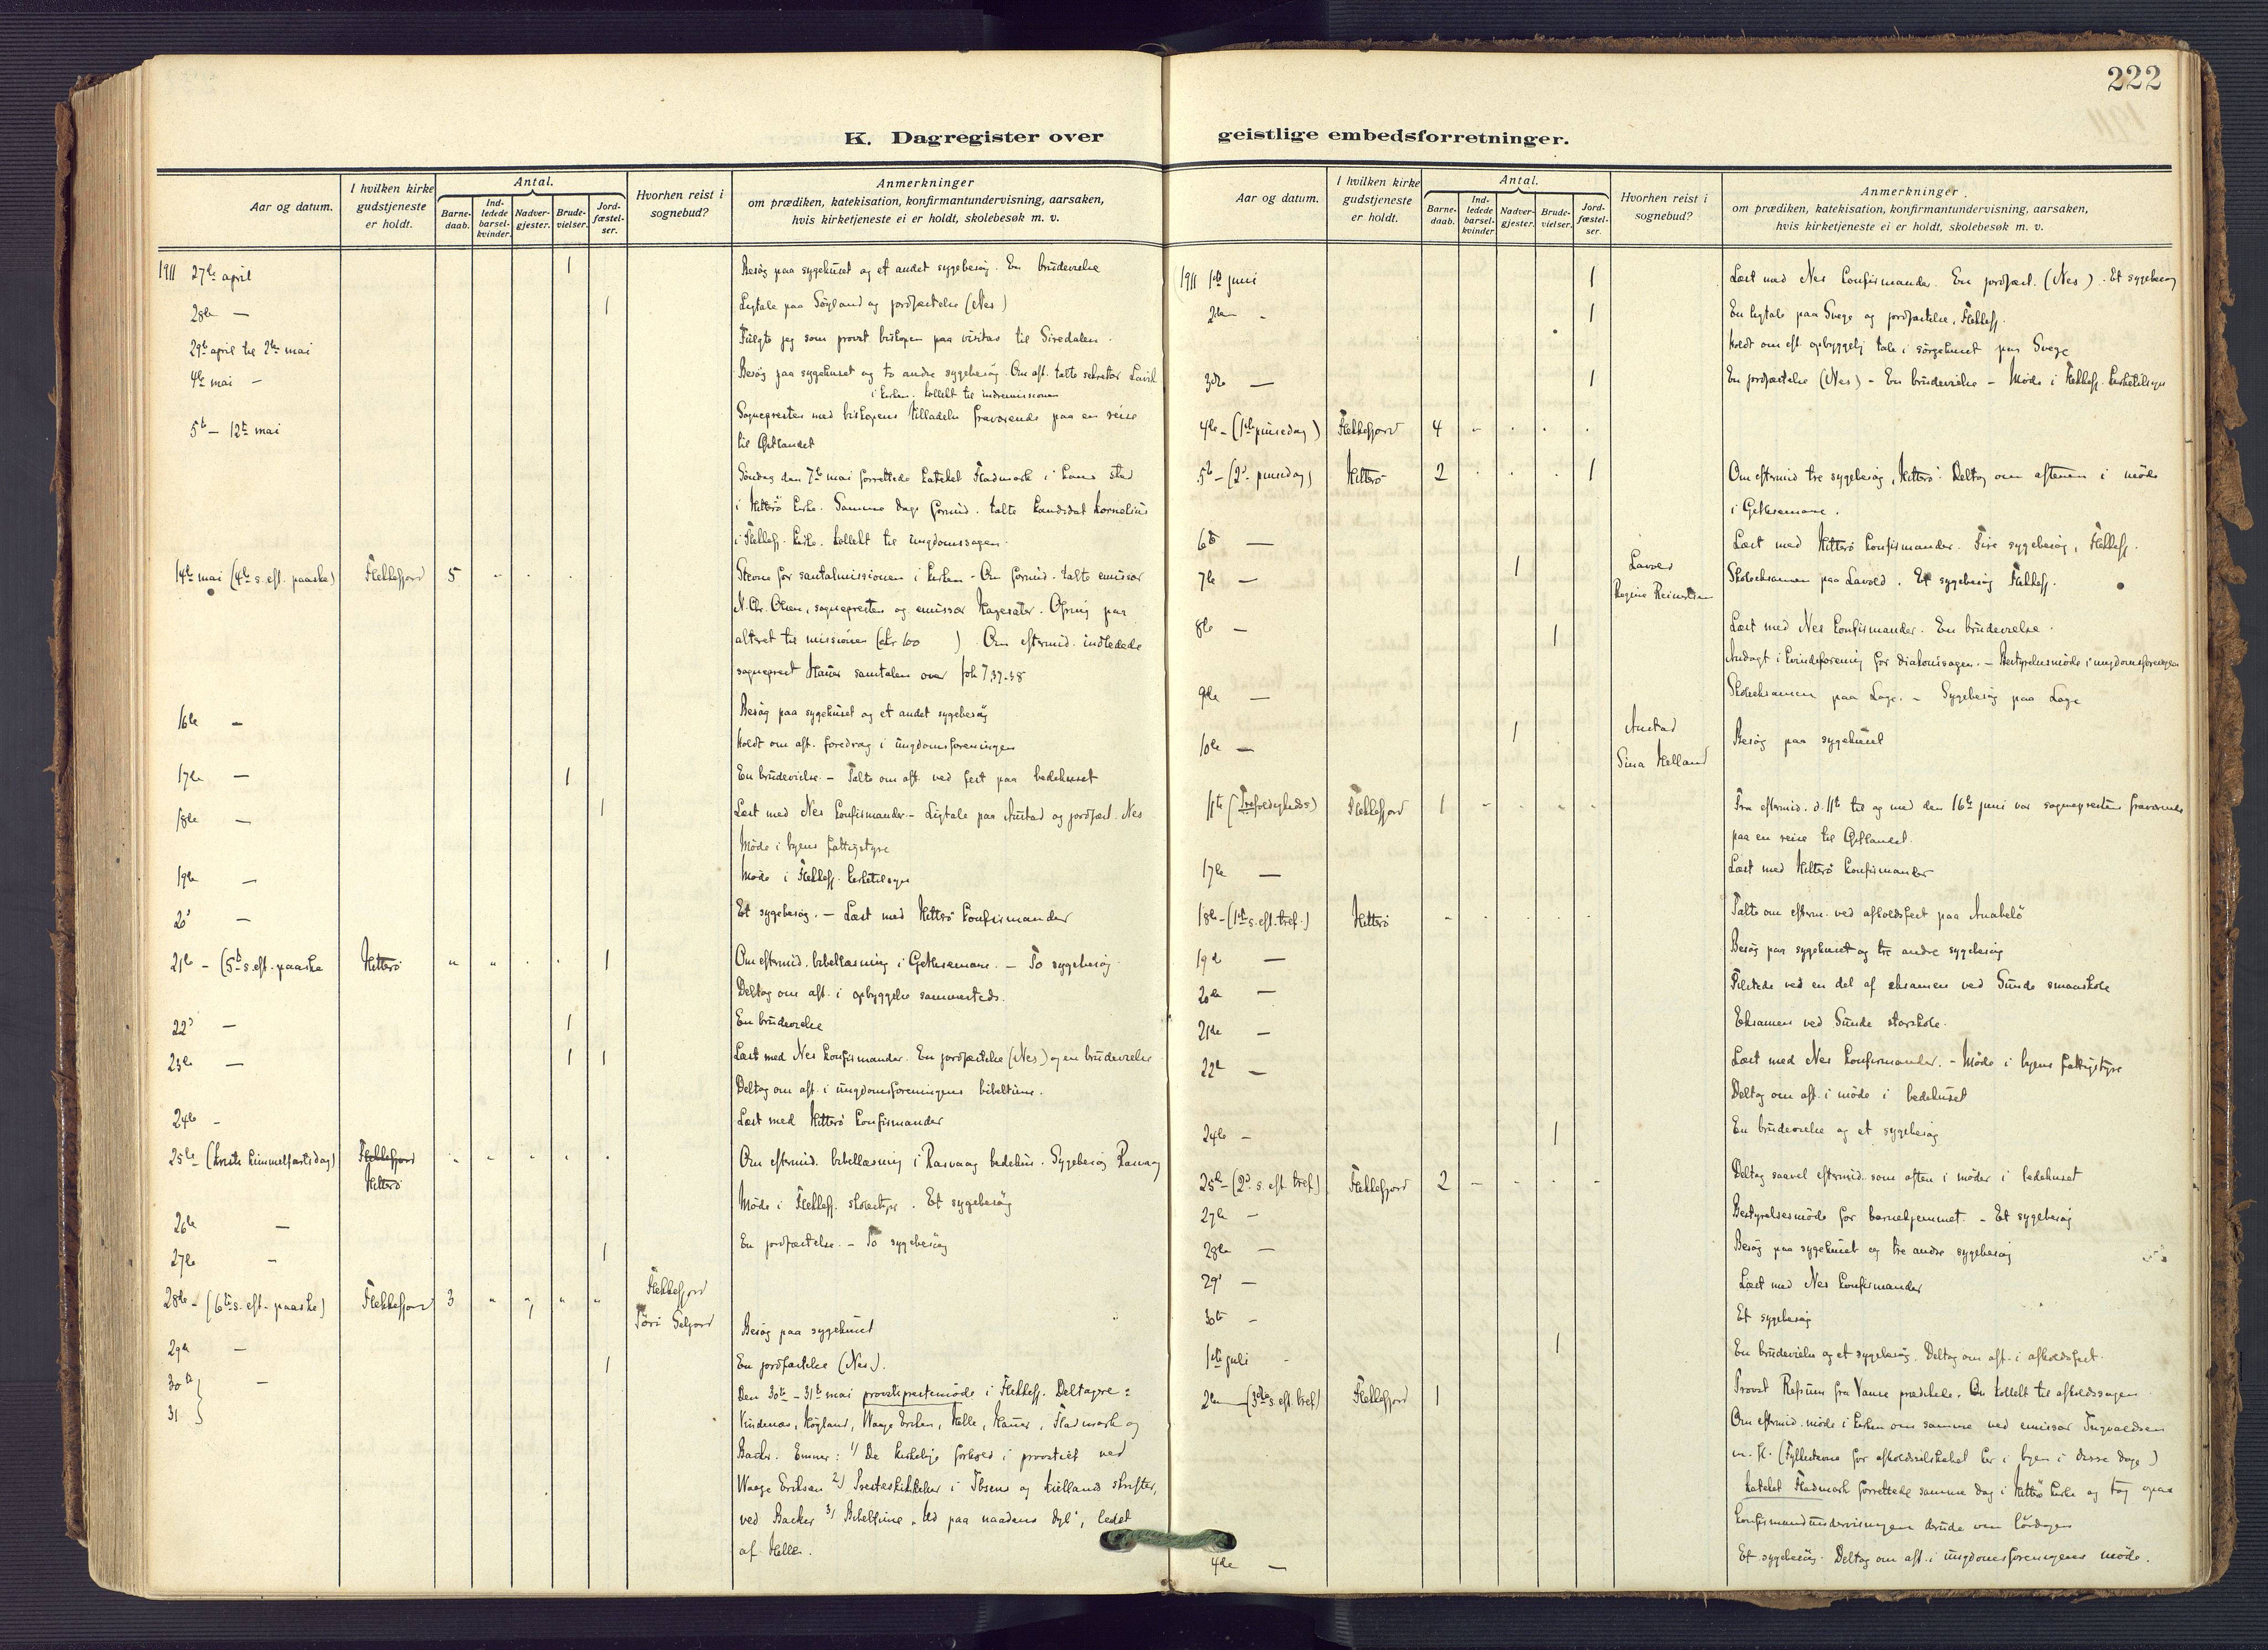 222
K. Dagregister over
Aar og datum.
I hvilken kirke gudstjeneste er holdt.
Antal.
Barne-daab.
Ind-ledede barsel-kvinder.
Nadver-gjester.
Brude-vielser.
Jord-fæstel-ser.
Hvorhen reist i sognebud?
Anmerkninger
om prædiken, katekisation, konfirmantundervisning, aarsaken,
hvis kirketjeneste ei er holdt, skolebesøk m. v.
1911 27de april 1 Besøg paa sygehuset og et andet sygebesøg. En brudevielse
28de — 1 Ligtale paa Søyland og jordfæstelse (Nes)
29de april til 2den mai Fulgte jeg som provst biskopen paa visitas til Siredalen.
4de mai — Besøg paa sygehuset og to andre sygebesøg. Om aft. talte sekretær
i kirken. Kollekt til indremissionen
5te – 12te mai Sognepresten med biskopens tilladelse fraværende paa en reise
til Østlandet
Søndag den 7de mai forrettede kateket Fladmark i hans sted
i Hitterö kirke. Samme dags formid. talte kandidat Kornelius
i Flekkefj. kirke. Kollekt til ungdomssagen.
14de mai (4de s. eft. paaske) Flekkefjord 5 - . . . Stevne for santalmissionen i kirken – Om formid. talte emissær
N. Chr. Olsen, sognepresten og emissær Hagesæter. Ofring paa
alteret til missionen (kr 100 ). Om eftermid. indledede
sogneprest Hauer samtalen over Joh 7,37-38
16de — Besøg paa sygehuset og et andet sygebesøg
Holdt om aft. foredrag i ungdomsforeningen
17de — 1 En brudevielse. – Talte om aft. ved fest paa bedehuset
18de — 1 Læst med Nes konfirmander – Ligtale paa Austad og jordfæst. Nes
Møde i byens fattigstyre
19de — Møde i Flekkefj. kirketilsyn
20de — Et sygebesøg. – Læst med Hitterö konfirmander
21de – (5te s. eft. paaske Hitterö " " . . 1 Om eftermid. bibellæsning i Gethsemane. – To sygebesøg
Deltog om aft. i opbyggelse sammesteds.
22de — 1 En brudevielse
23de — 1 1 Læst med Nes konfirmander. En jordfæstelse (Nes) og en brudevielse
Deltog om aft. i ungdomsforeningens bibeltime.
24de - Læst med Hitterö konfirmander
25de – (Kristi himmelfartsdag) Flekkefjord Hitterö Om eftermid. bibellæsning i Rasvaag bedehus. Sygebesøg Rasvaag
26de — Møde i Flekkefj. skolestyre. Et sygebesøg
27de - 1 En jordfæstelse. – To sygebesøg
28de – (6te s. eft. paaske) Flekkefjord 3 " " " " Flekkefjord
29de — Besøg paa sygehuset
30te — 1 En jordfæstelse (Nes).
31 Den 30te – 31te mai provstiprestemøde i Flekkefj. Deltagere:
Vindenæs, Høyland, Waage Eriksen, Helle, Hauer, Fladmark og
Backer. Emner: 1/ De kirkelige forhold i provstiet ved
Waage Eriksen 2/ Presteskikkelser i Ibsens og Kiellands skrifter,
ved Backer 3/ Bibeltime „Ud paa naadens dyb", ledet
af Helle.
geistlige embedsforretninger.
Aar og datum.
I hvilken kirke gudstjeneste er holdt.
Antal.
Barne-daab.
Ind-ledede barsel-kvinder.
Nadver-gjester.
Brude-vielser.
Jord-fæstel-ser.
Hvorhen reist i sognebud?
Anmerkninger
om prædiken, katekisation, konfirmantundervisning, aarsaken,
hvis kirketjeneste ei er holdt, skolebesøk m. v.
1911 1ste juni 1 Læst med Nes konfirmander. En jordfæst. (Nes). Et sygebesøg
2den - 1 En ligtale paa Svege og jordfæstelse, Flekkefj.
Holdt om eft. opbyggelig tale i sørgehuset paa Svege
3die — 1 En jordfæstelse (Nes) – En brudevielse – Møde i Flekkefj. kirketilsyn
4de – (1ste pinsedag) Flekkefjord 4 - . . .
5te – (2den pinsedag) Hitterö 2 . . . 1 Om eftermid tre sygebesøg, Hitterö. Deltog om aftenen i møde
i Gethsemane.
6te — Læst med Hitterö konfirmander. Fire sygebesøg, Flekkefj.
7de — 1 Lavold Regine Reinertsen Skoleeksamen paa Lavold. Et sygebesøg Flekkefj.
8de — 1 Læst med Nes konfirmander. En brudevielse.
Andagt i kvindeforening for diakonisagen. – Bestyrelsesmøde i ungdomsforeningen
9de — Skoleeksamen paa Loge. – Sygebesøg paa Loge
10de — 1 Austad Sina Helland Besøg paa sygehuset
11te (Trefoldigheds) Flekkefjord 1 - - . . Fra eftermid. d. 11te til og med den 16de juni var sognepresten fraværende
paa en reise til Østlandet.
17de — Læst med Hitterö konfirmander
18de – (1ste s. eft. tref.) Hitterö - . . . . Talte om efterm. ved afholdsfest paa Anabelö
19de — Besøg paa sygehuset og tre andre sygebesøg
20de — Tilstede ved en del af eksamen ved Sunde smaaskole
21de — Eksamen ved Sunde storskole.
22de — Læst med Nes konfirmander. – Møde i byens fattigstyre
Deltog om aft. i møde i bedehuset
24de - 1 En brudevielse og et sygebesøg
25de – (2den s. eft. tref.) Flekkefjord 2 - - . - Deltog saavel eftermid. som aften i møder i bedehuset
27de — Bestyrelsesmøde for barnehjemmet. – Et sygebesøg
28de — Besøg paa sygehuset og tre andre sygebesøg
29de — Læst med Nes konfirmander
30te - Et sygebesøg
1ste juli - 1 En brudevielse og et sygebesøg. Deltog om aft. i afholdsfest.
2den — (3die s. eft. tref) Flekkefjord 1 Provst Refsum fra Vanse prædikede. On kollekt til afholdssagen
Om eftermid. møde i kirken om samme ved emissær Ingvaldsen
m. fl. (Fylkestevne for afholdsselskabet her i byen i disse dage)
Kateket Fladmark forrettede samme dag i Hitterö kirke og tog ogsaa
konfirmandundervisningen derude om lördagen
4de — Et sygebesøg. Deltog om aft. i ungdomsforeningens møde.